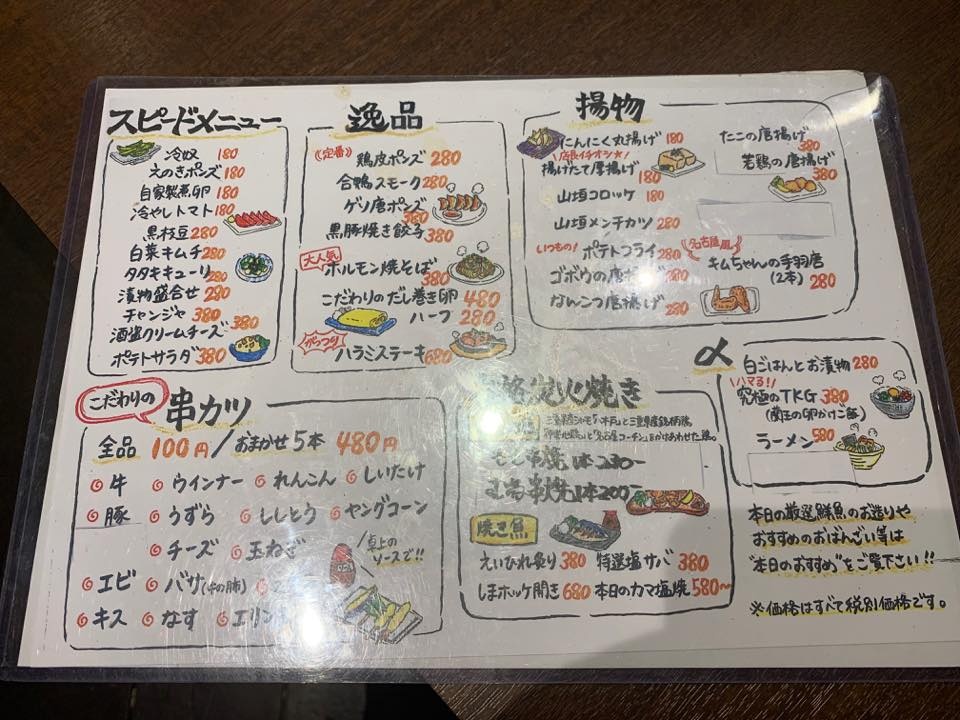 スピードメニュー
冷奴 180
えのきポンズ 180
自家製煮卵 180
冷やしトマト 180
黒枝豆 280
白菜キムチ 280
タタキキューリ 280
漬物盛合せ 280
チャンジャ 380
酒盗クリームチーズ 380
ポテトサラダ 380
逸品
《定番》
鶏皮ポンズ 280
合鴨スモーク 280
ゲソ唐ポンズ 380
黒豚焼き餃子 380
大人気
ホルモン焼そば 380
こだわりのだし巻き卵 480
ハーフ 280
がっつり
ハラミステーキ 680
揚物
にんにく丸揚げ 180
店長イチオシ★
揚げたて厚揚げ 180
山垣コロッケ 180
山垣メンチカツ 280
いつもの!
ポテトフライ 280
ゴボウの唐揚げ 280
なんこつ唐揚げ 280
たこの唐揚げ 380
若鶏の唐揚げ 380
名古屋風
キムちゃんの手羽唐
(2本) 280
こだわりの
串カツ
全品 100円/おまかせ5本 480円
牛 ウインナー れんこん しいたけ
豚 うずら ししとう ヤングコーン
チーズ 玉ねぎ
エビ バサ(牛の肺)
キス なす エリン
卓上の
ソースで!!
炭火焼き
もも串焼 1本 230〜
むね串焼 1本 200〜
焼き魚
えいひれ炙り 380 特選塩サバ 380
しまホッケ開き 680 本日のカマ塩焼 580〜
〆
白ごはんとお漬物 280
ハマる!!
究極のTKG 380
(蘭王の卵かけご飯)
ラーメン 580
本日の厳選鮮魚のお造りや
おすすめのおばんざい等は
"本日のおすすめ"をご覧下さい!!
※価格はすべて税別価格です。